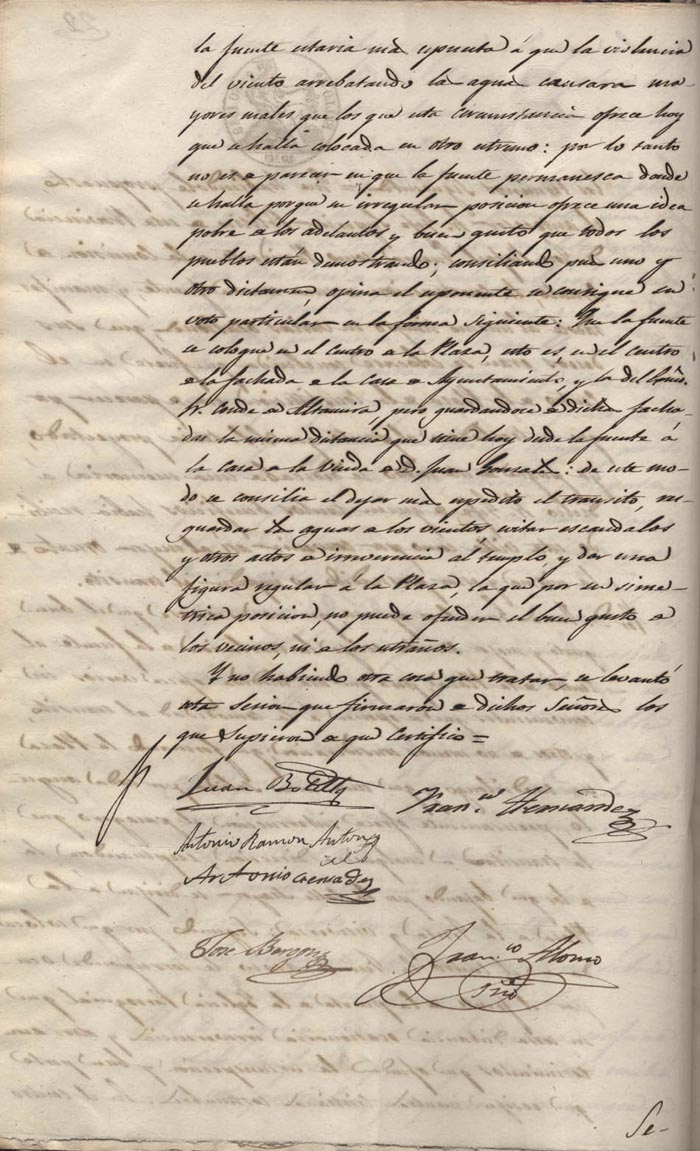 la fuente estaria mas espuesta á que la violencia
del viento arrebatando la agua causara ma-
yores males que los que esta circunstancia ofrece hoy
que se halla colocada en otro estremo: por lo tanto
no es de parecer en que la fuente permanesca donde
se halla porque su irregular posicion ofrece una idea
pobre a los adelantos y buen gusto que todos los
pueblos están demostrando; consiliando pues uno y
otro dictamen, opina el esponente se consigne su
voto particular en la forma siguiente: Que la fuente
se coloque en el centro de la Plaza, esto es, en el centro
de la fachada de la casa de Ayuntamiento, y la del Exmo.
Sr. Conde de Altamira, pero guardandoce de dichas facha-
das la misma distancia que tiene hoy desde la fuente á
la casa de la Viuda de D. Juan Gonzalez: de este mo-
do se consilia el dejar mas espedito el transito, res-
guardar las aguas de los vientos, evitar escandalos
y otros actos de irreverencia al templo y dar una
figura regular á la Plaza, la que por su sime-
trica posicion, no pueda ofender el buen gusto de
los vecinos, ni de los estraños.
Y no habiendo otra cosa que tratar, se levantó
esta sesion que firmaron de dichos Señores los
que supieron de que Certifico=
Juan Botella
Fran.co Hernandez
Antonio Ramon Antonio
Antonio
Jose
Fran.co Alonso
Srio
Se-